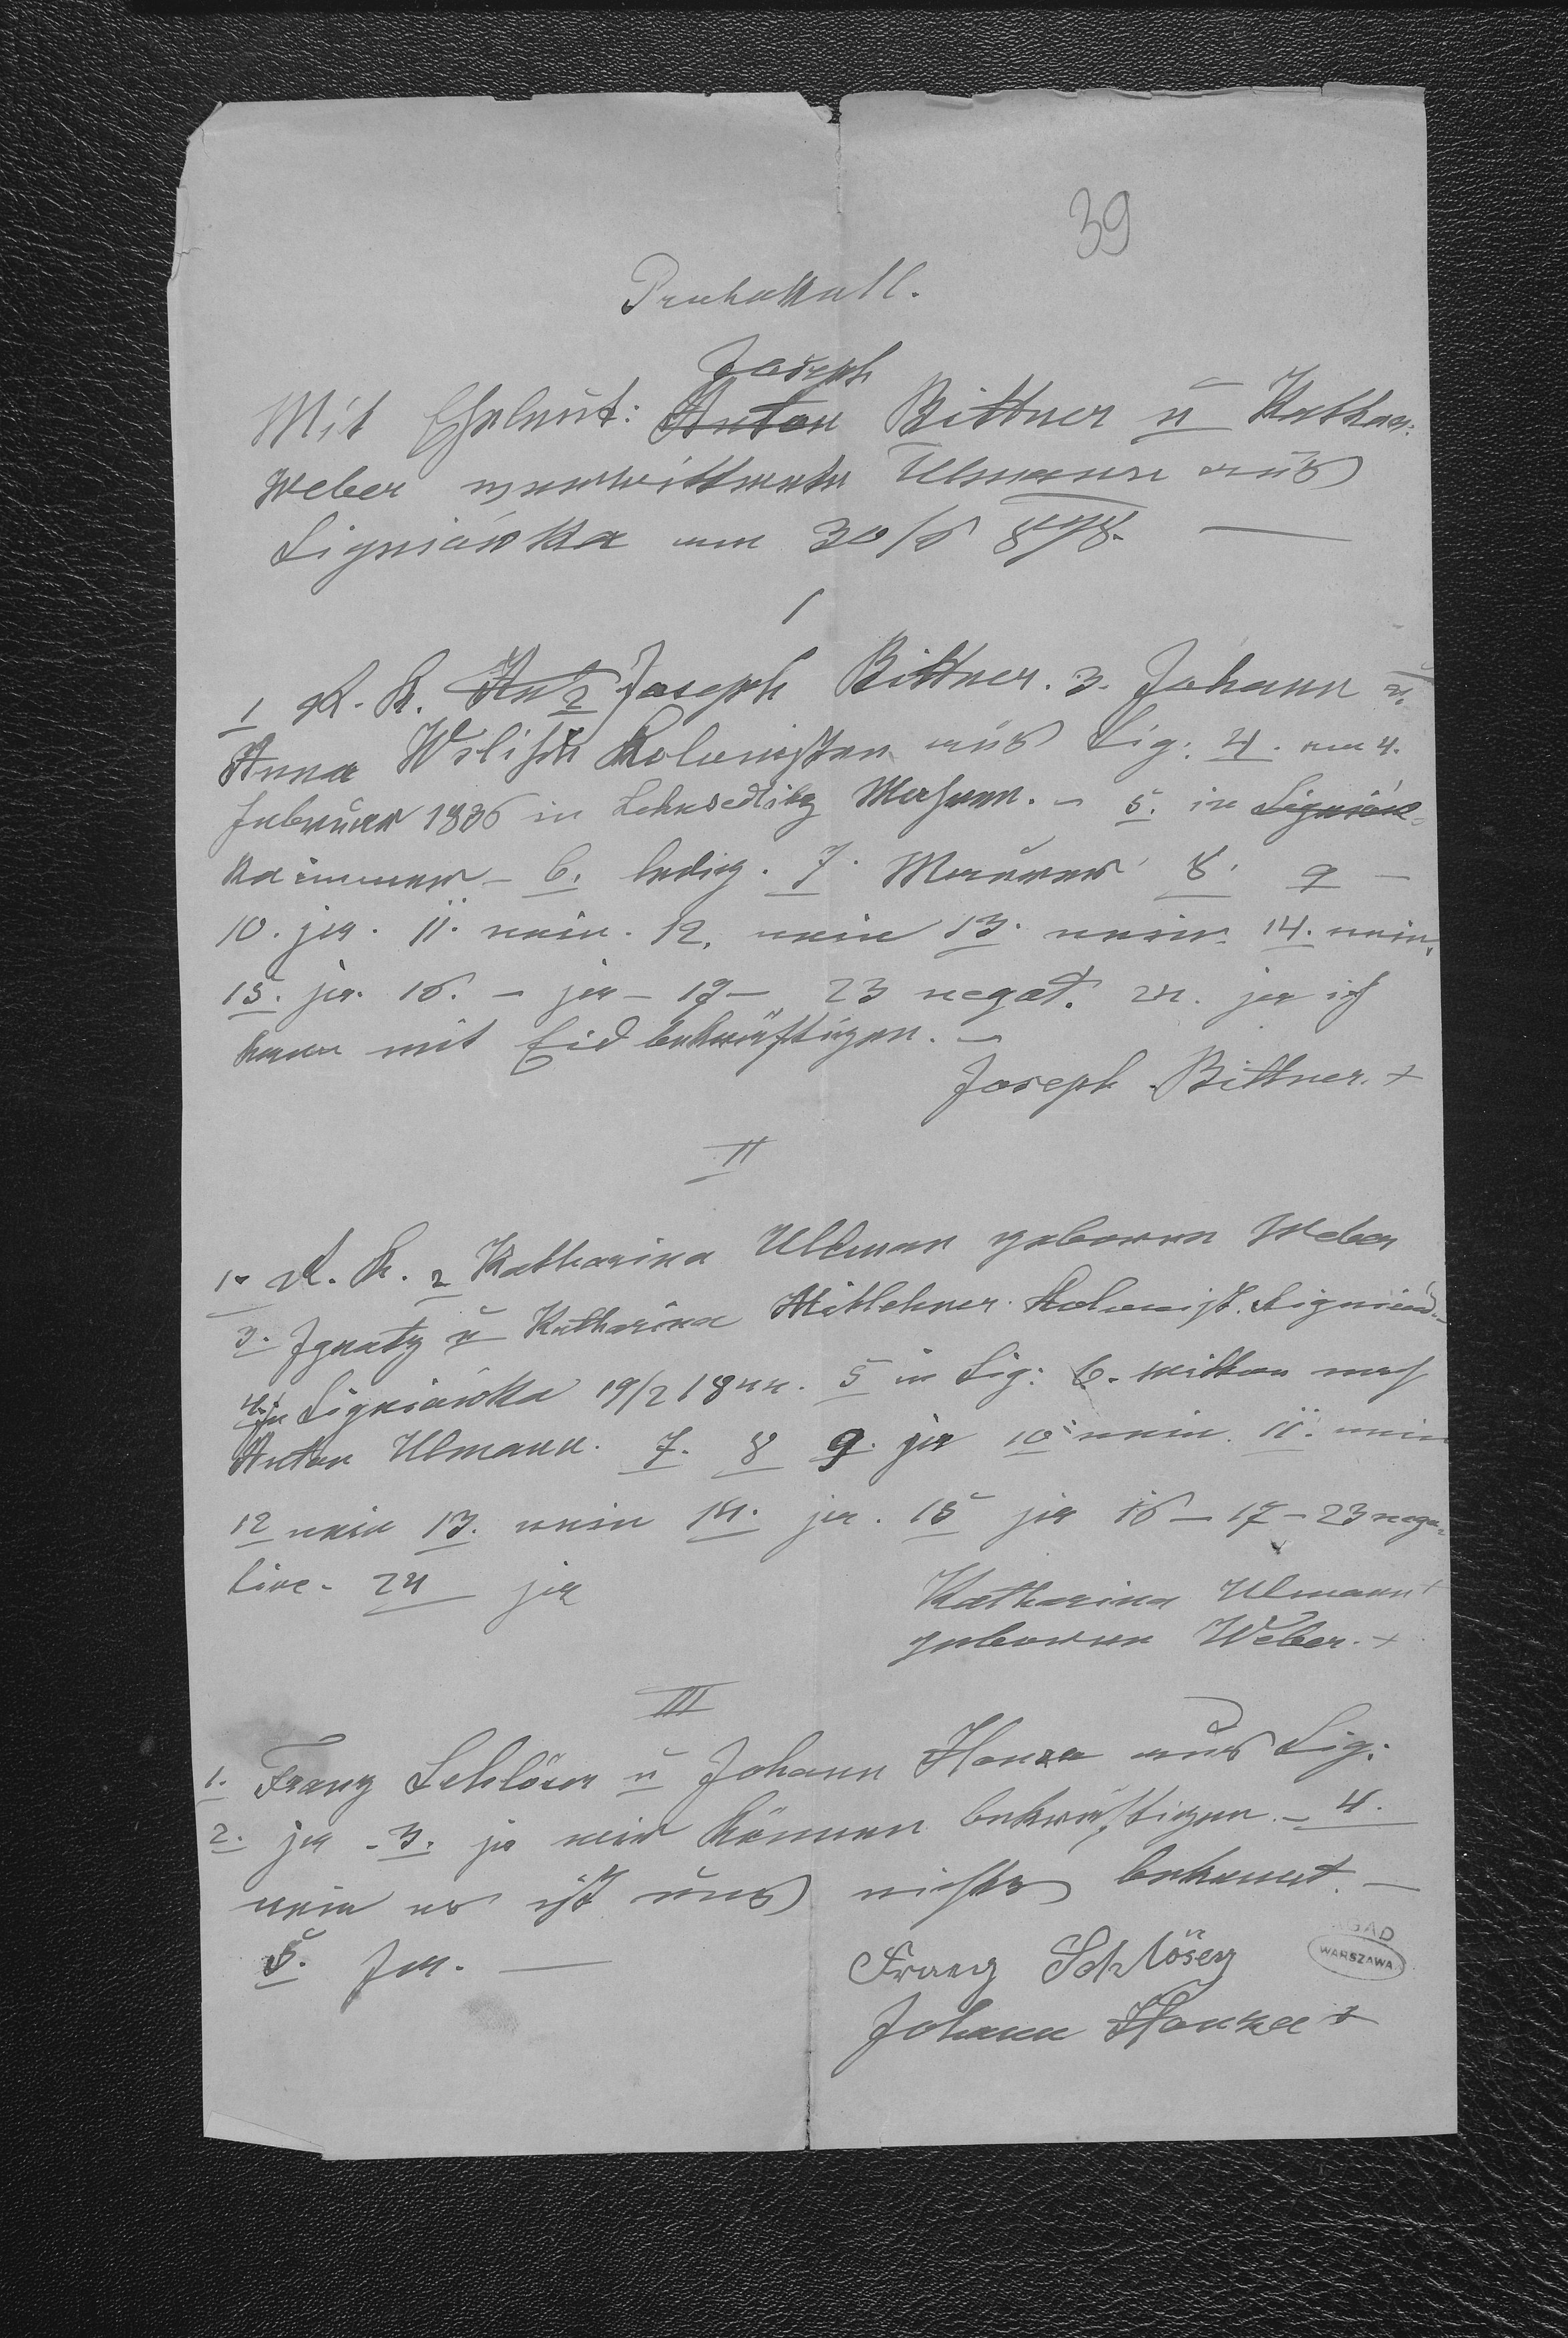 39
Protokoll.
Joseph
Mit Eheleut: Anton Bittner u Kathar:
Weber verwittwete Ulmann aus
Ligniówka am 30/6 898. —
I
1 R. K. Ant 2 Joseph Bittner. 3. Johann u.
Anna Kolonisten aus Lig: 4. am 4.
Februar 1836 in Mähren. - 5. in Ligniów=
ka immer - 6. ledig. 7. Maurer 8. 9 —
10. ja. 11. nein. 12. nein 13. nein. 14. nein.
15. ja. 16. - ja - 17 - 23 negat. 24. ja ich
kann mit Eid bekräftigen. -
Joseph Bittner. +
II
1. R. K. 2 Katharina Ullman geborene Weber
3. Ignatz u Katharina Mitlehner Kolonist.
4. in Ligniówka 19/2 1844. 5 in Lig: 6. nach
Anton Ulmann. 7. 8 9. ja 10 nein. 11. nein
12 nein 13. nein 14. ja. 15 ja 16 - 17 - 23 nega=
tive. 24 ja
Katharina Ulmann +
geborene Weber. +
III
1. Franz Schlöser u Johann Honza aus Lig:
2. ja - 3. ja wir können bekräftigen. - 4.
nein es ist uns nichts bekannt. —
5. Ja. —
Franz Schlöser
Johann Honza +
AGAD
WARSZAWA